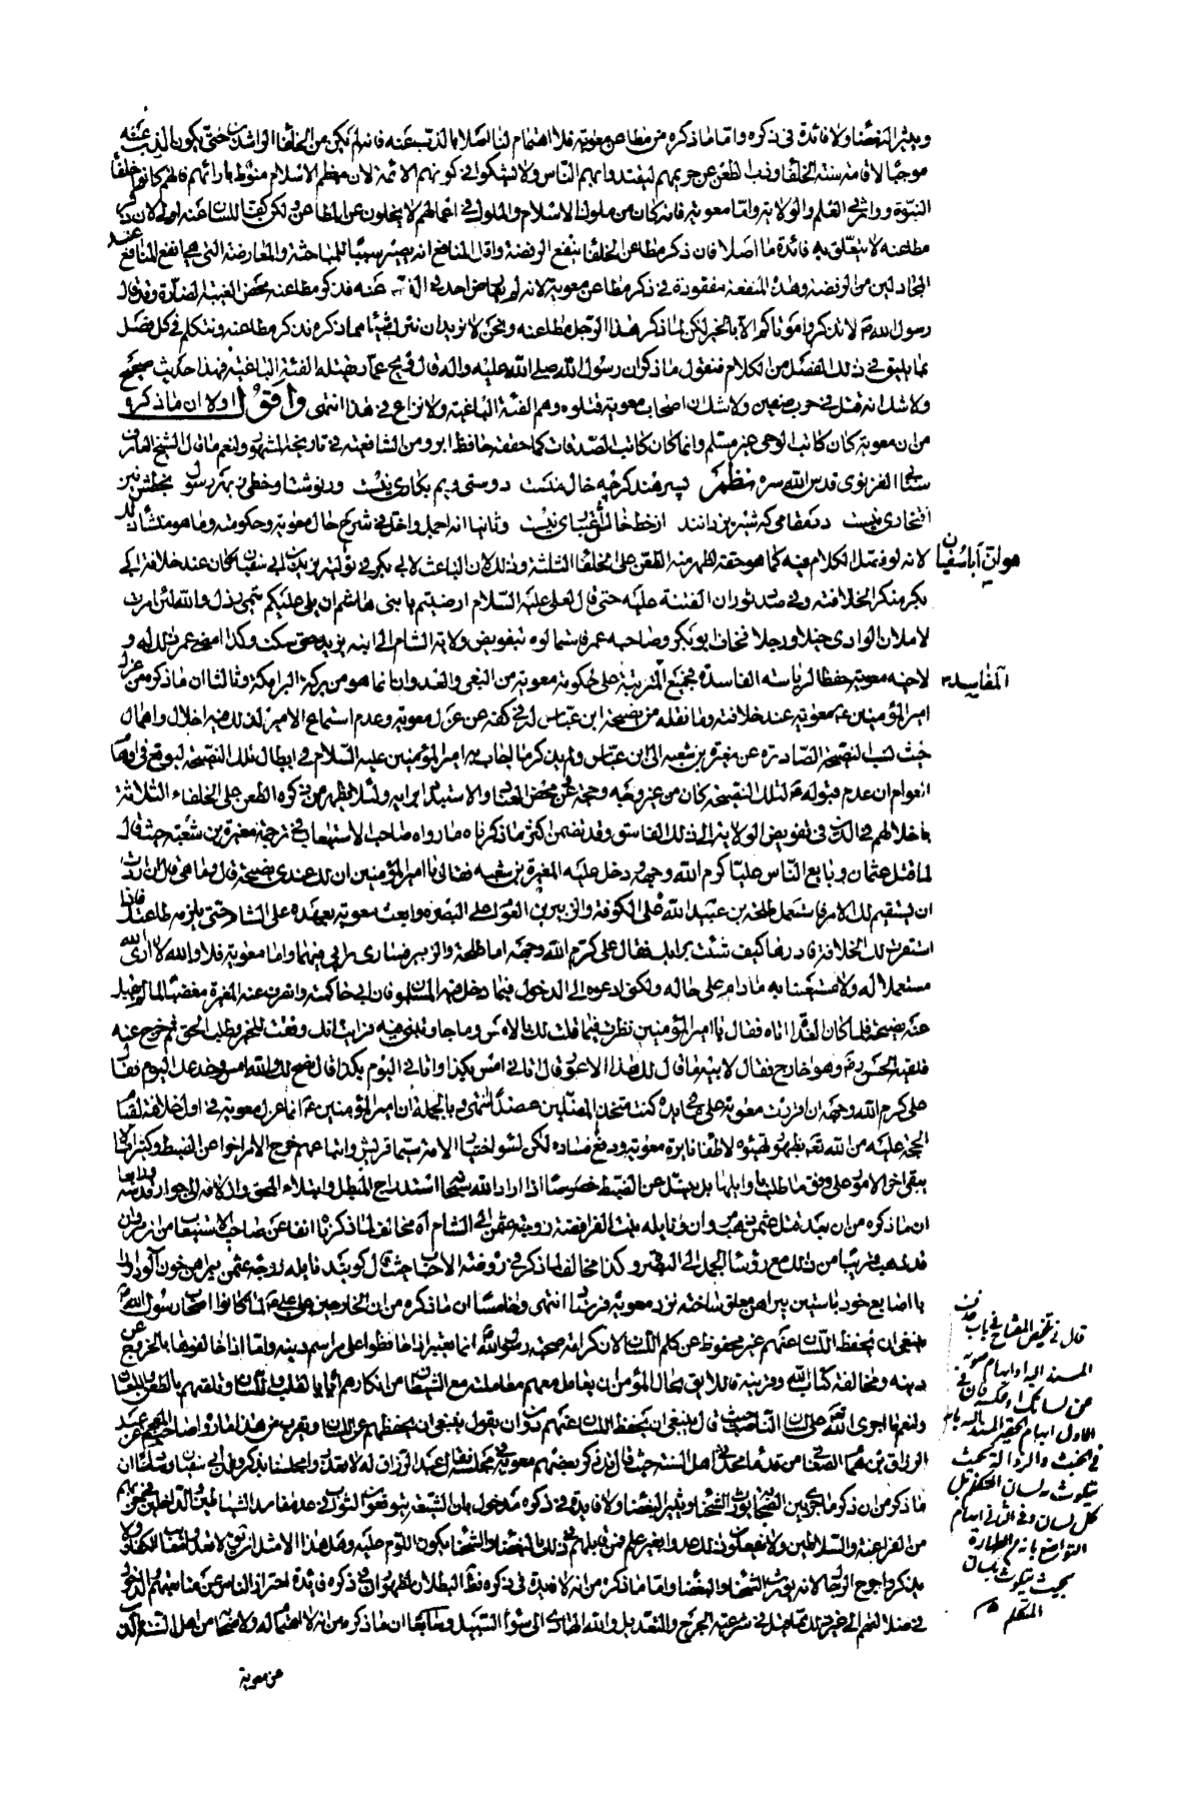 ويثير البغضاء ولا فائدة في ذكره واما ما ذكره من مطاعن معوية فلا اهتمام لنا اصلا بالذب عنه فانه لم يكن من الخلفا الراشدين حتى يكون الذب عنه
موجبا لاقامة سنة الخلفا وذب الطعن عن حريمهم ليقتدي بهم الناس ولا يشكوا في كونهم الائمة لان معظم الاسلام منوط بارائهم فانهم كانوا خلفا
النبوة ووارثي العلم والولاية واما معوية فانه كان من ملوك الاسلام والملوك في اعمالهم لا يخلون عن المطاعن ولكن كف اللسان عنه اولى لان ذكر
مطاعنه لا يتعلق به فائدة ما اصلا فان ذكر مطاعن الخلفا ينفع الرفضة واقل المنافع انه يصير سببا للمباحثة والمعارضة التي هي انفع المنافع عند
المجادلين من الرفضة وهذه المنفعة مفقودة في ذكر مطاعن معوية لانه لم يعارض احد في عنه فذكر مطاعنه محض الغيبة الضارة وقد قال
رسول الله ص لا تذكروا موتاكم الا بالخير لكن لما ذكر هذا الرجل مطاعنه ونحن لا نريد ان نترك شيئا مما ذكره نذكر مطاعنه ونتكلم في كل فصل
بما يليق في ذلك الفصل من الكلام فنقول ما ذكر ان رسول الله صلى الله عليه واله قال ويح عمار تقتله الفئة الباغية فهذا حديث صحيح
ولا شك انه قتل في حرب صفين ولا شك ان اصحاب معوية قتلوه وهم الفئة الباغية ولا نزاع في هذا انتهى واقول اولا ان ما ذكره
من ان معوية كان كاتب الوحي غير مسلم وانما كان كاتب الصدقات كما حققه حافظ ابرو من الشافعية في تاريخه المشهور ولنعم ما قال الشيخ العارف
سنائي الغزنوي قدس الله سره نظم پسر هند اگرچه خال منست دوستي ويم بكاري نيست ور نوشت او خطي ز بهر رسول بخطش نيز
افتخاري نيست در مقامي كه شير يزدانند از خط خال اعتباري نيست وثانيا انه اجمل واخل في شرح حال معوية وحكومته وما هو منشأ ذلك
لانه لو فصل الكلام فيه كما هو حقه لظهر منه الطعن على الخلفا الثلثة وذلك لان الباعث لابي بكر في تولية يزيد بن ابي سفيان كان عند خلافة ابي
هو ان اباسفيان
بكر منكر الخلافته وفي صدد ثوران الفتنة عليه حتى قال لعلي عليه السلام ارضيتم يا بني هاشم ان يلي عليكم تيمي رذل والله لئن امرت
لاملأن الوادي خيلا ورجلا فخاف ابو بكر وصاحبه عمر فاستمالوه بتفويض ولاية الشام الى ابنه يزيد حتى سكت وكذا امضى عمر ذلك له و
لاخيه معوية حفظا لرياسته الفاسدة فجميع المترتبة على حكومة معوية من البغي والفساد انما هو من بركة البرامكة وثالثا ان ما ذكره من عزل
المفاسد
امير المؤمنين ع معوية عند خلافته وما نقله من نصيحة ابن عباس له في كفه عن عزل معوية وعدم استماع الامير لذلك فيه اخلال واهمال
حيث نسب النصيحة الصادرة عن مغيرة بن شعبة الى ابن عباس ولم يذكر ما اجاب به امير المؤمنين عليه السلام في ابطال تلك النصيحة ليوقع في اوهام
العوام ان عدم قبوله ع لتلك النصيحة كان من غير وجه وحجة عن محض العناد والاستبداد برايه ولئلا يظهر من ذكره الطعن على الخلفاء الثلاثة
باخلالهم في الدين في تفويض الولاية الى ذلك الفاسق وقد تضمن اكثر ما ذكرناه ما رواه صاحب الاستيعاب في ترجمة مغيرة بن شعبة حيث قال
لما قتل عثمان وبايع الناس عليا كرم الله وجهه دخل عليه المغيرة بن شعبة فقال يا امير المؤمنين ان لك عندي نصيحة قال وما هي قال ان اردت
ان يستقيم لك الامر فاستعمل طلحة بن عبيد الله على الكوفة والزبير بن العوام على البصرة وابعث معوية بعهده على الشام حتى يلزمه طاعتك فاذا
استقرت لك الخلافة فادرها كيف شئت برايك فقال علي كرم الله وجهه اما طلحة والزبير فسارى رايي فيهما واما معوية فلا والله لا اراني الله
مستعملا له ولا مستعينا به ما دام على حاله ولكني ادعوه الى الدخول فيما دخل فيه المسلمون فان ابى حاكمته وانصرف عنه المغيرة مغضبا لما لم يقبل
عنه نصيحته فلما كان الغد اتاه فقال يا امير المؤمنين نظرت فيما قلت لك بالامس وما جاوبتني فيه فرايت انك وفقت للخير وطلب الحق ثم خرج عنه
فلقيه الحسن رض وهو خارج فقال لابيه ما قال لك هذا الاعور قال اتاني امس بكذا واتاني اليوم بكذا قال نصح لك والله امس وخدعك اليوم فقال
علي كرم الله وجهه ان اقررت معوية على ما في يده كنت متخذ المضلين عضدا انتهى وبالجملة ان امير المؤمنين ع انما عزل معوية في اول خلافته لقيام
الحجة عليه من الله تع بظهور تهيئوه لاطفاء نايرة معوية ودفع فساده لكن لسوء اختيار الامة سيما قريش واتباعهم خرج الامر اخرا عن الضبط وكثيرا ما لا
يبقى اخر الامور على وفق ما طلب اوايلها بل يختل عن الضبط خصوصا اذا اراد الله سبحانه استدراج المبطل وابتلاء المحق والازلاف الى جوار قدسه ورابعا
ان ما ذكره من ان بعد قتل عثمان ذهب مروان ونايله بنت الفرافصة زوجة عثمان الى الشام اه مخالف لما ذكرناه انفا عن صاحب الاستيعاب من ان مروان
قد ذهب قريبا من ذلك مع رؤساء الجمل الى البصرة وكذا مخالف لما ذكر في روضة الاحباب حيث قال كويند نايله زوجه عثمان پيراهن خون آلود او
با اصابع خود باستين پيراهن معلق ساخته نزد معوية فرستاد انتهى وخامسا ان ما ذكره من ان الخارجين على علي ع لما كانوا اصحاب رسول الله ص
فينبغي ان يحفظ اللسان عنهم غير محفوظ عن كلم اللسان لان كرامة صحبة رسول الله ص انما يعتبر اذا حافظوا على مراسم دينه واما اذا خالفوها بالخروج عن
دينه ومخالفة كتاب الله وقرينه فاللايق بحال المؤمن ان يعامل معهم معاملته مع الشيطان من انكارهم بالقلب واللسان وتلقيهم بالطعن واللعان
ولنعم ما اجرى الله على لسان الناصب حيث قال ينبغي ان يحفظ اللسان عنهم دون ان يقول ينبغي ان يحفظهم عن اللسان ويقرب من هذا ما رواه صاحب المعجم عن عبد
الرزاق بن همام الصنعاني من قدماء محدثي اهل السنة حيث قال انه ذكر بعضهم معوية في مجلسه فقال عبد الرزاق له لا تقذر مجلسنا بذكر ولد ابي سفيان وسادسا ان
ما ذكره من ان ذكر ما جرى بين الصحابة يورث الشحناء ويثير البغضاء ولا فايدة في ذكره مدخول بان
من الفراعنة والسلاطين
بذكر
في ضلالتهم الى غير ذلك والله الهادي الى سواء السبيل وسابعا ان ما ذكره من انه لا اهتمام له ولا صحابه من اهل السنة بالذب
عن معوية
قال في تلخيص المفتاح في باب حذف
المسند اليه او ايهام صونه
عن لسانك او عكسه فان في
الاول ايهام تحقير المسند اليه بانه
في الخبث والرذالة بحيث
يتلوث به لسان المتكلم بل
كل لسان وفي الثاني ايهام
التواضع بانه من الطهارة
بحيث يتلوث بلسان
المتكلم